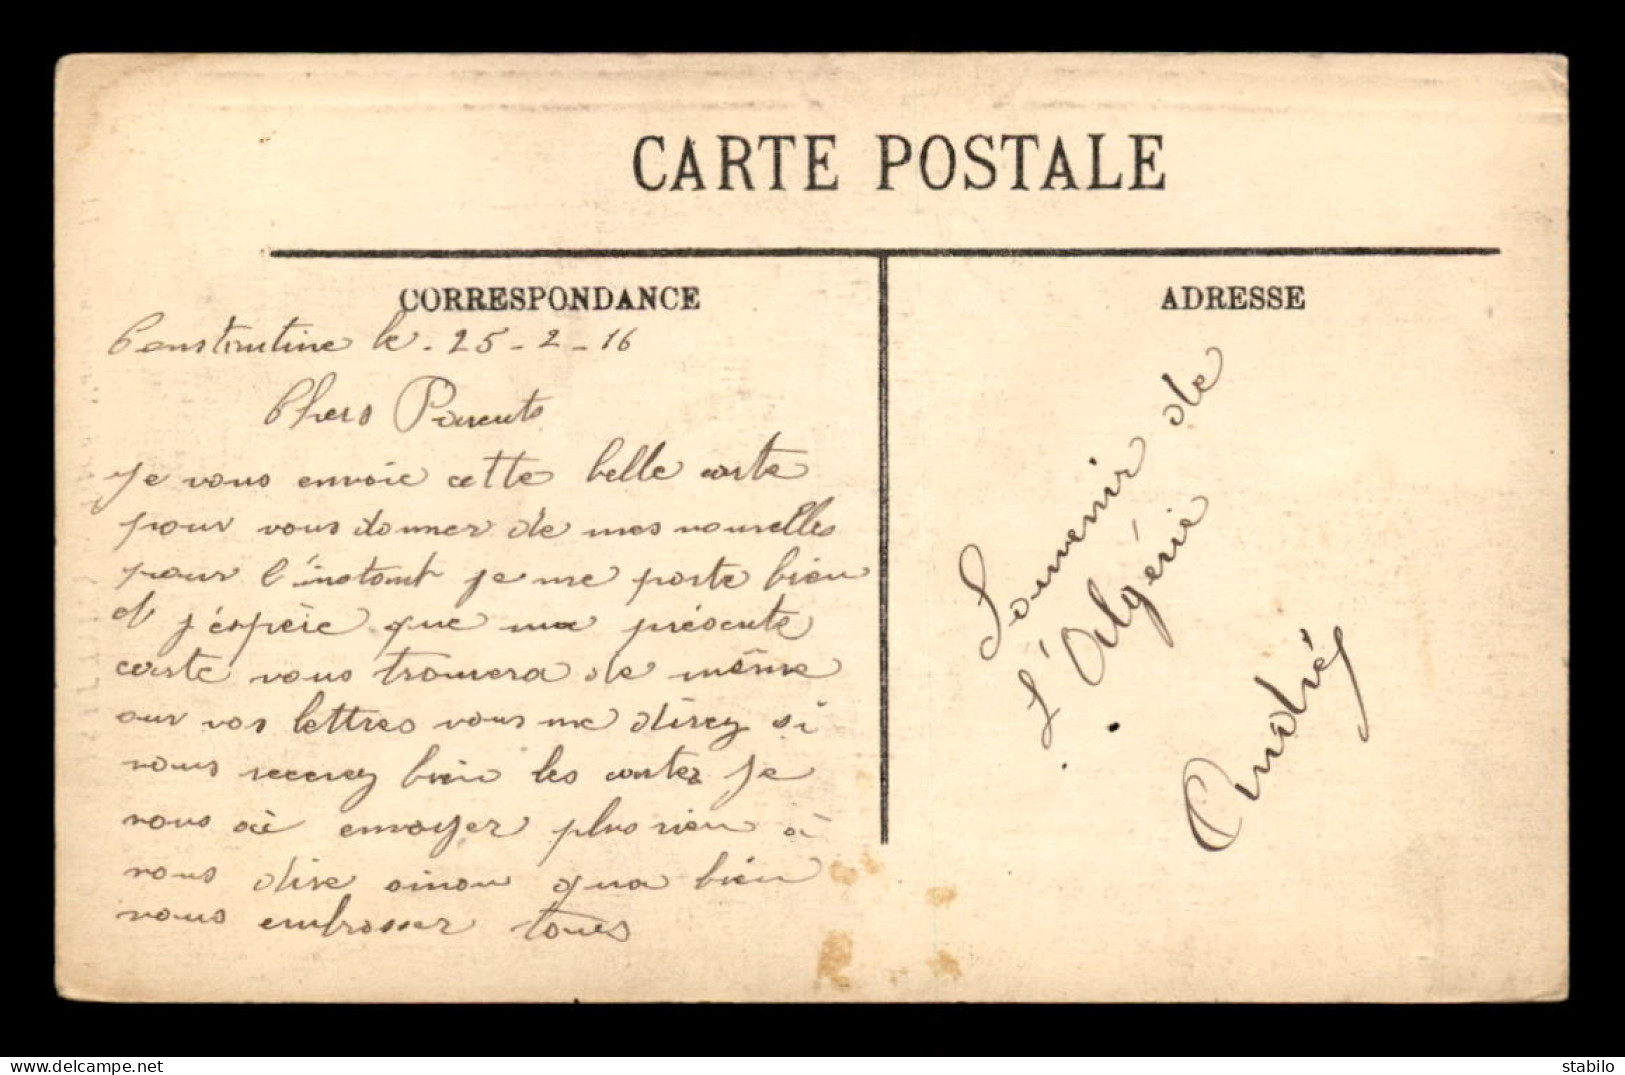 CARTE POSTALE
CORRESPONDANCE
ADRESSE
Constantine le. 25-2-16
Chers Parents
Je vous envoie cette belle carte
pour vous donner de mes nouvelles
pour l'instant je me porte bien
et j'éspère que ma présente
carte vous trouvera de même
sur vos lettres vous me direz si
vous recevez bien les cartes je
vous ai envoyer plus rien a
vous dire sinon qua bien
vous embrasser tous
Souvenir de
l'Algérie
André
stabilo
https://www.delcampe.net